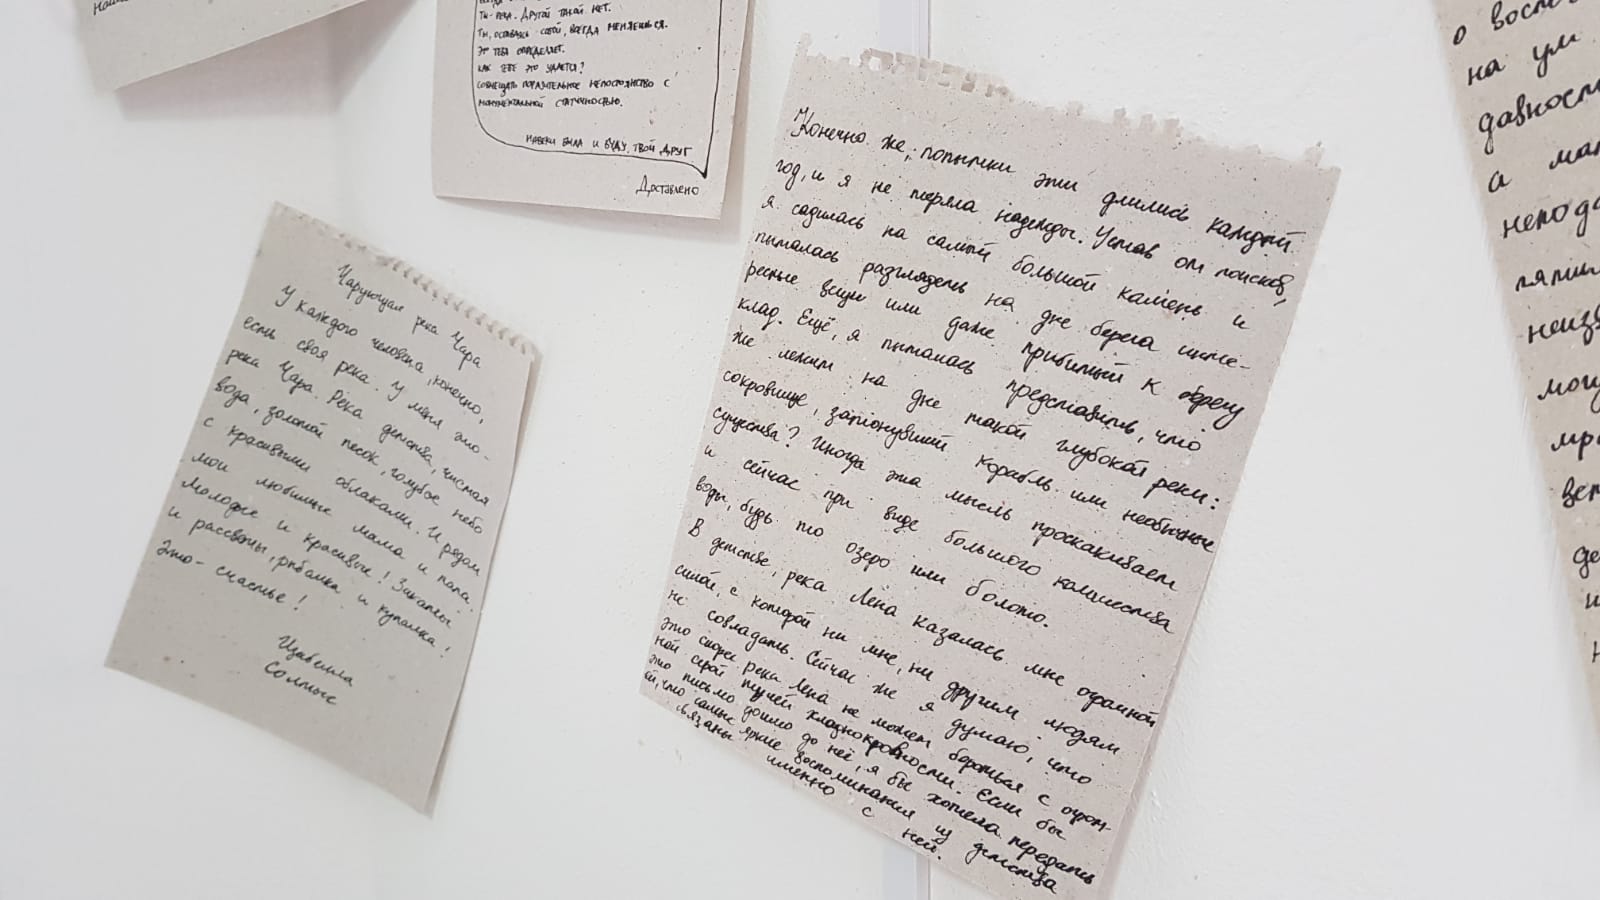 Ты - река. Другой такой нет.
Ты, оставаясь собой, всегда меняешься.
Это тебя определяет.
Как тебе это удается?
Совмещать поразительное непостоянство с
монументальной статичностью.
Навеки была и буду, твой друг
Доставлено
Чарующая река Чара
У каждого человека, конечно,
есть своя река. У меня это -
река Чара. Река детства, чистая
вода, золотой песок, голубое небо
с красивыми облаками. И рядом
мои любимые мама и папа.
Молодые и красивые! Закаты
и рассветы, рыбалка и купалка!
Это - счастье!
Изабелла
Солтыс
Конечно же, попытки эти длились каждый
год, и я не теряла надежды. Устав от поисков,
я садилась на самый большой камень и
пыталась разглядеть на дне берега инте-
ресные вещи или даже прибитый к берегу
клад. Ещё, я пыталась представить, что
же лежит на дне такой глубокой реки:
сокровище, затонувший корабль или необычные
существа? Иногда эта мысль проскакивает
и сейчас при виде большого количества
воды, будь то озеро или болото.
В детстве, река Лена казалась мне огромной
силой, с которой ни мне, ни другим людям
не совладать. Сейчас же я думаю, что
это скорее река Лена не может бороться с огром-
ной серой тучей хладнокровности. Если бы
это письмо дошло до неё, я бы хотела передать
ей, что самые яркие воспоминания из детства
связаны именно с ней.
о
на ум
давност
а
непод
неизв